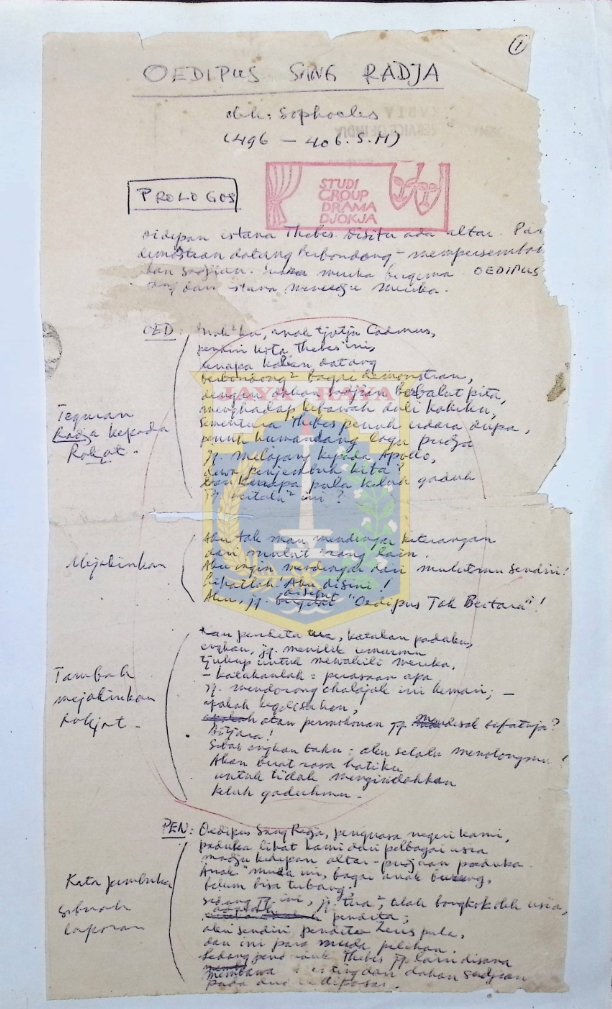 1
OEDIPUS SANG RADJA
oleh: Sophocles
(496 – 406. S.M)
STUDI
GROUP
DRAMA
DJOKJA
PROLOGOS
didepan istana Thebes. Disitu ada altar. Par
demonstran datang berbondong - mempersembah
kan sadjian. muka mereka bergema. OEDIPUS
dari istana mereka.
OED: Anak² ku, anak tjutju Cadmus,
penghuni kota Thebes ini,
kenapa kalian datang
berbondong² bagai demonstran,
dengan dahan sadjian berbalut pita,
menghadap kebawah duli kakiku,
sementara Thebes penuh udara dupa,
penuh kumandang lagu pudja
jg. melajang kepada Apollo,
dewa penjembuh kita?
Dan kenapa pula keluh gaduh
ini?
JAYA RAYA
Teguran
Radja kepada
Rakjat.
Mejakinkan
Aku tak mau mendengar keterangan
dari mulut orang lain.
Aku ingin mendengar dari mulutmu sendiri!
Lihatlah Aku disini!
Aku, jg. disebut "Oedipus Tak Bertara"!
Tambah
mejakinkan
Rakjat.
kau pendeta tua, katakan padaku,
engkau, jg. menilik umurmu
tjukup untuk mewakili mereka,
– katakanlah: perasaan apa
jg. mendorong chalajak ini kemari; –
apalah kegelisahan,
atau permohonan jg.
Bitjara!
engkau tahu: aku selalu menolongmu!
Akan berat rasa hatiku
untuk tidak mengindahkan
keluh gaduhmu.
PEN: Oedipus Sang Radja, penguasa negeri kami,
paduka lihat kami dari pelbagai usia
madju kedepan altar - pudjaan paduka.
Anak² muda ini, bagai anak burung,
belum bisa terbang;
sedang ini, jg "tua" telah bongkok oleh usia,
adalah pendeta;
aku sendiri pendeta Zeus pula,
dan ini para muda pilihan.
Sedang Thebes jg lain disana
membawa dahan sadjian
pada
Kata pembuka
sebuah
laporan